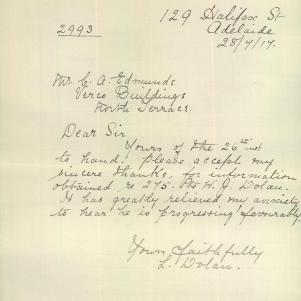 2993
129 Halifax St
Adelaide
28/7/17.
Mr C. A. Edmunds.
Verco Buildings
North Terrace.
Dear Sir
Yours of the 26th inst
to hand. Please accept my
sincere thanks. for information
obtained re 275. Pte H. J. Dolan.
It has greatly relieved my anxiety
to hear he is progressing favourably.
Yours faithfully
L. Dolan.